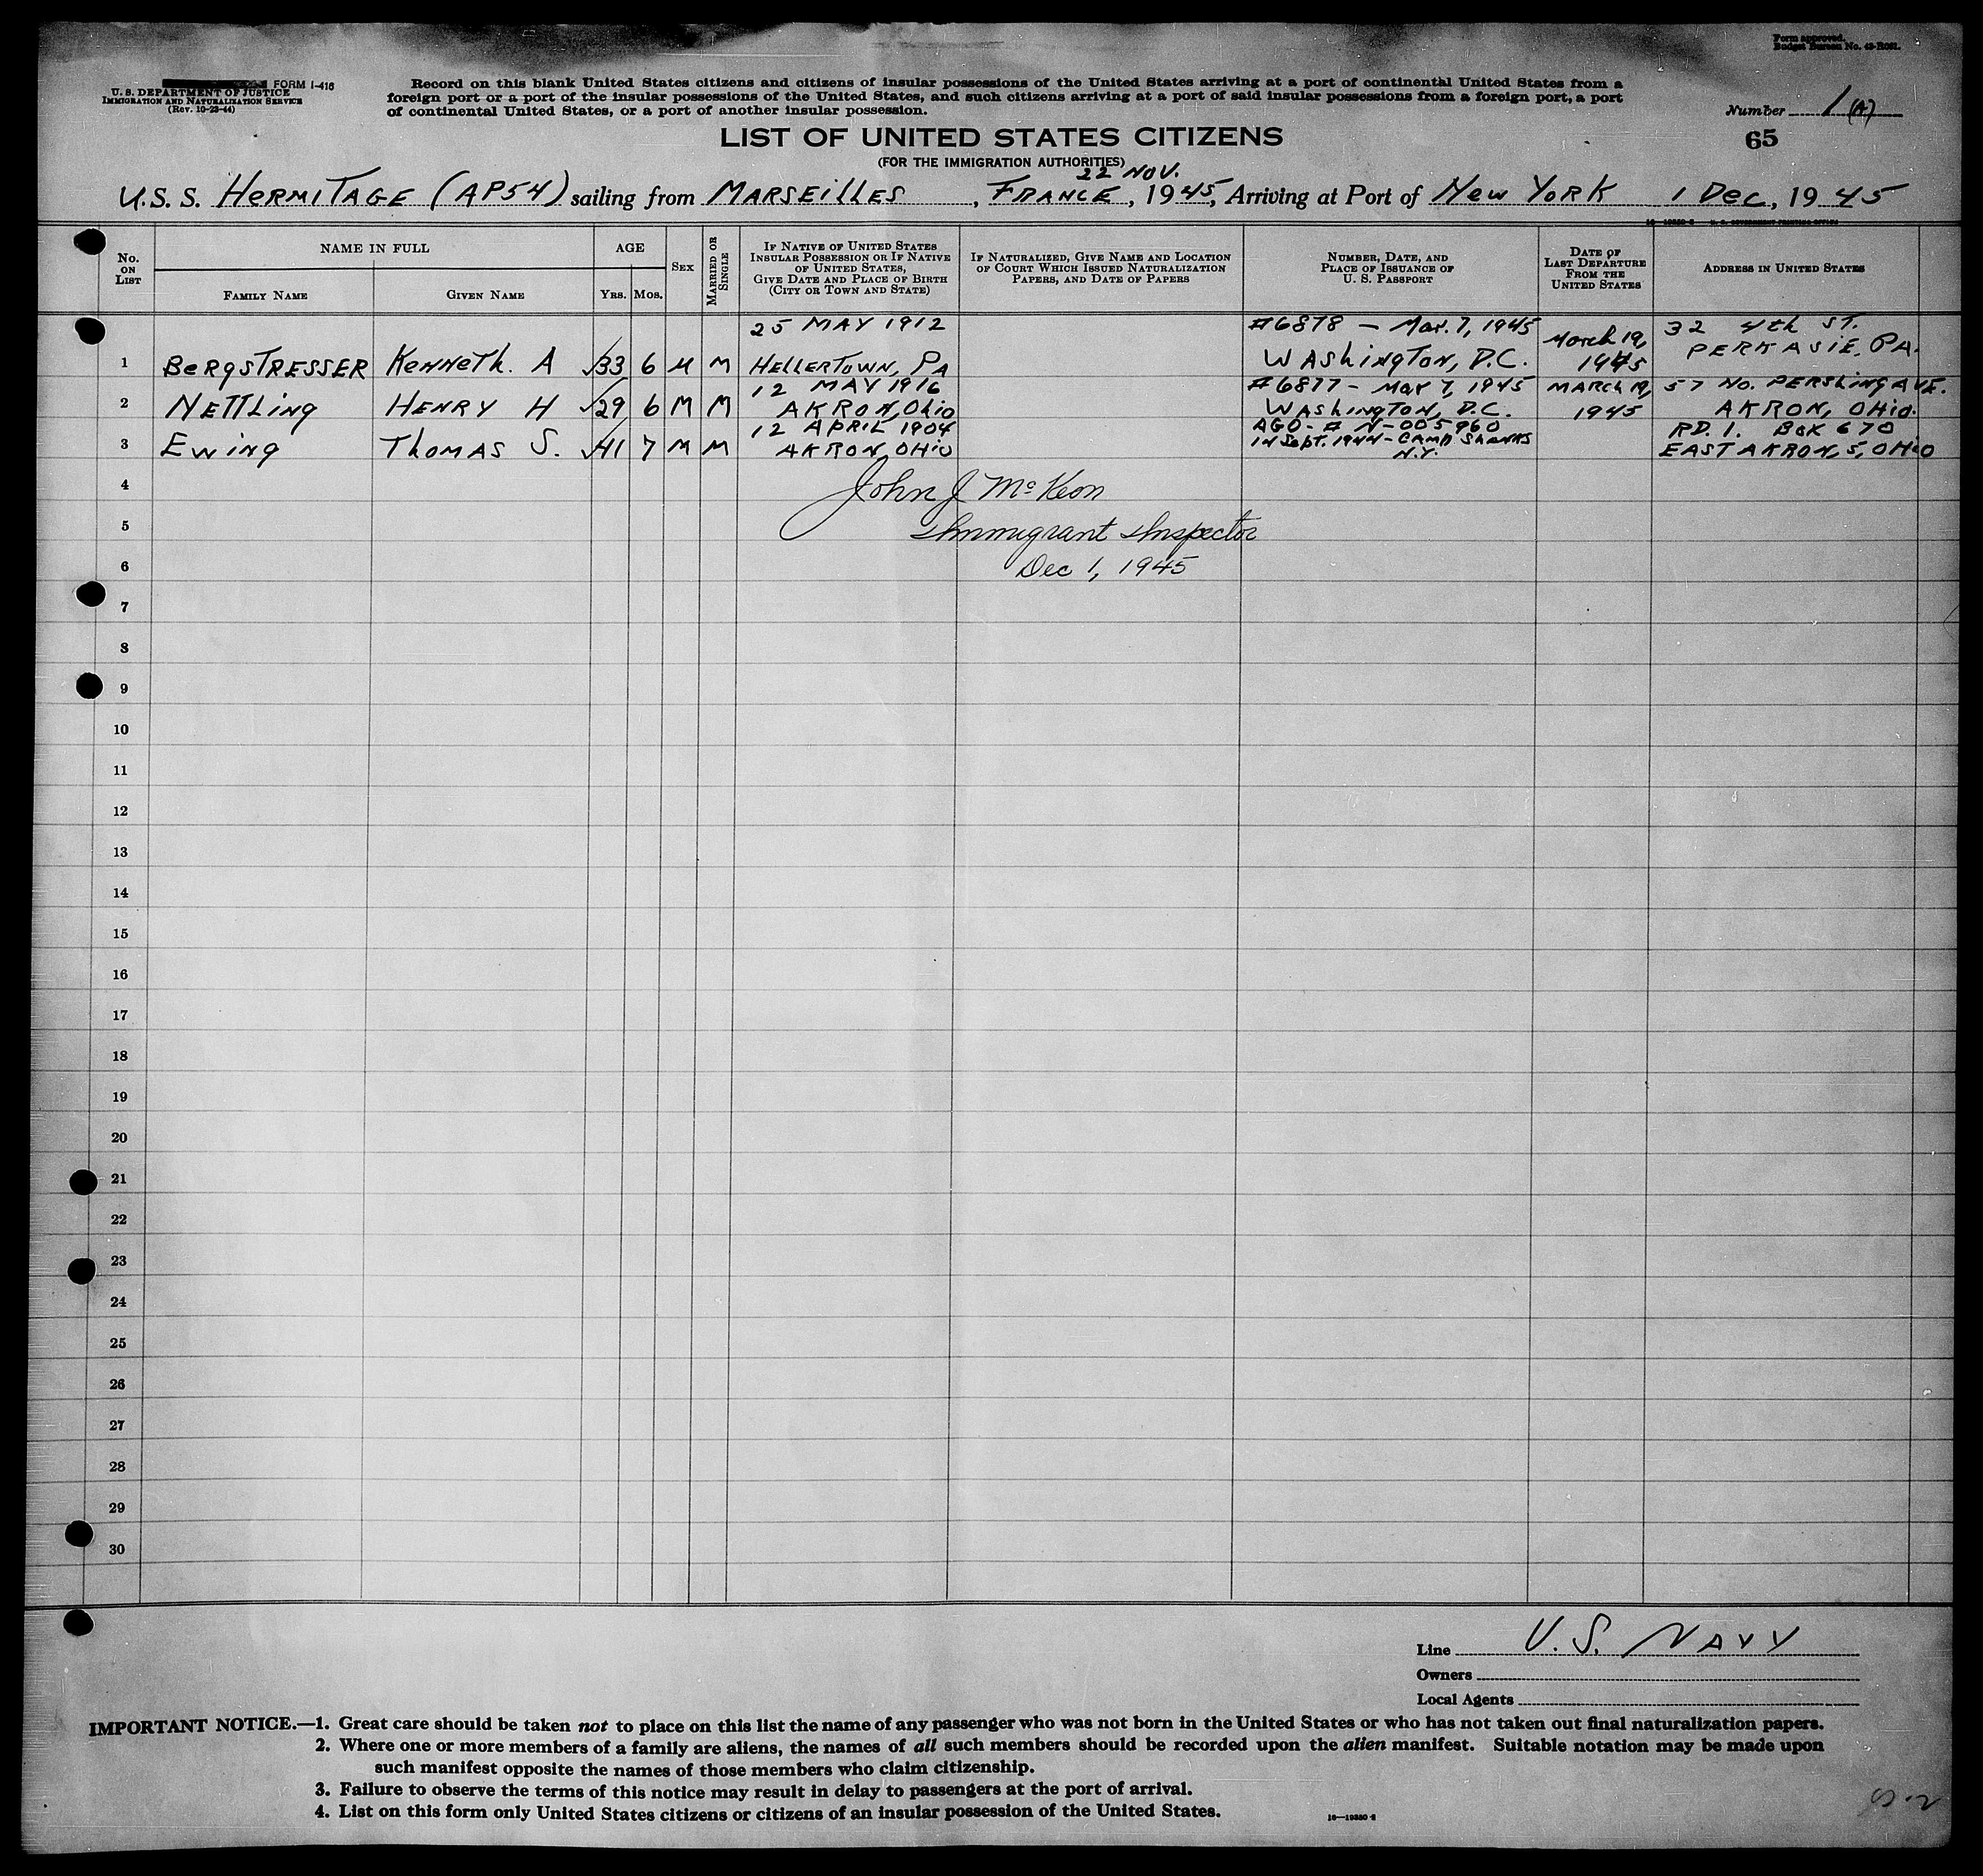 Form approved.
Budget Bureau No. 43-R081.
FORM I-416
U. S. DEPARTMENT OF JUSTICE
IMMIGRATION AND NATURALIZATION SERVICE
(Rev. 10-23-44)
Record on this blank United States citizens and citizens of insular possessions of the United States arriving at a port of continental United States from a
foreign port or a port of the insular possessions of the United States, and such citizens arriving at a port of said insular possessions from a foreign port, a port
of continental United States, or a port of another insular possession.
Number 1 (A)
65
LIST OF UNITED STATES CITIZENS
(FOR THE IMMIGRATION AUTHORITIES)
22 NOV.
U.S.S. HERMITAGE (AP54) sailing from MARSEILLES, FRANCE, 1945, Arriving at Port of NEW YORK 1 DEC, 1945
No. ON LIST
NAME IN FULL
FAMILY NAME
GIVEN NAME
AGE
YRS.
MOS.
SEX
MARRIED OR SINGLE
IF NATIVE OF UNITED STATES
INSULAR POSSESSION OR IF NATIVE
OF UNITED STATES,
GIVE DATE AND PLACE OF BIRTH
(CITY OR TOWN AND STATE)
IF NATURALIZED, GIVE NAME AND LOCATION
OF COURT WHICH ISSUED NATURALIZATION
PAPERS, AND DATE OF PAPERS
NUMBER, DATE, AND
PLACE OF ISSUANCE OF
U. S. PASSPORT
DATE OF
LAST DEPARTURE
FROM THE
UNITED STATES
ADDRESS IN UNITED STATES
25 MAY 1912 #6878 — Mar. 7, 1945 March 19, 32 4th ST.
1 BERGSTRESSER KENNETH. A √33 6 M M HELLERTOWN, PA WASHINGTON, D.C. 1945 PERKASIE, PA.
12 MAY 1916 #6877 - Mar 7, 1945 MARCH 19, 57 NO. PERSHING AVE.
2 NETTLING HENRY H √29 6 M M AKRON, OHIO WASHINGTON, D.C. 1945 AKRON, OHIO.
12 APRIL 1904 AGO- # N-005960 RD. 1. BOX 670
3 EWING THOMAS S. √41 7 M M AKRON, OHIO Sept. 1944 - CAMP SHANKS N.Y. EAST AKRON, 5, OHIO
4 John J McKeon
5 Immigrant Inspector
6 Dec 1, 1945
7
8
9
10
11
12
13
14
15
16
17
18
19
20
21
22
23
24
25
26
27
28
29
30
Line U.S. NAVY
Owners
Local Agents
IMPORTANT NOTICE.—1. Great care should be taken not to place on this list the name of any passenger who was not born in the United States or who has not taken out final naturalization papers.
2. Where one or more members of a family are aliens, the names of all such members should be recorded upon the alien manifest. Suitable notation may be made upon
such manifest opposite the names of those members who claim citizenship.
3. Failure to observe the terms of this notice may result in delay to passengers at the port of arrival.
4. List on this form only United States citizens or citizens of an insular possession of the United States.